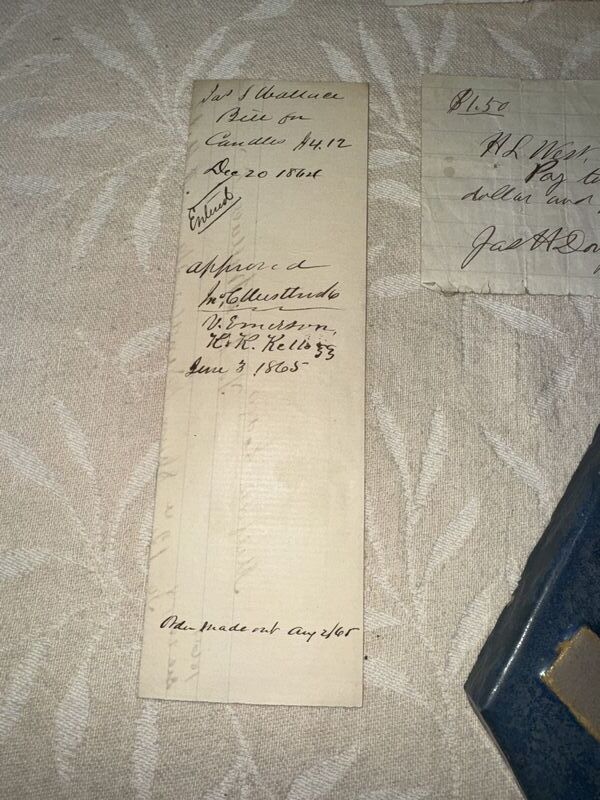 Jas S Wallace
Bill for
Candles $4.12
Dec 20 1864
Entered
approved
V. Emerson,
H. K. Kellogg
June 3 1865
Order made out Aug 2/65
$1.50
H L West,
Pay to
dollar and
Jas H